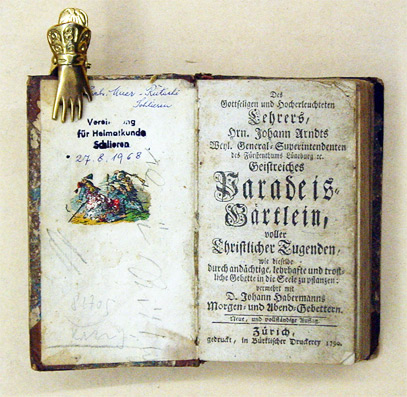 Schlieren
Vereinigung
für Heimatkunde
Schlieren
27. 8. 1968
Des
Gottseligen und Hocherleuchteten
Lehrers,
Hrn. Johann Arndts
Weyl. General-Superintendenten
des Fürstenthums Lüneburg ꝛc.
Geistreiches
Paradeis-
Gärtlein,
voller
Christlicher Tugenden,
wie dieselbe
durch andächtige, lehrhafte und tröst-
liche Gebette in die Seele zu pflanzen:
vermehrt mit
D. Johann Habermanns
Morgen- und Abend-Gebettern.
Neue, und vollständige Auflag.
Zürich,
gedruckt, in Bürklischer Druckerey 1790.